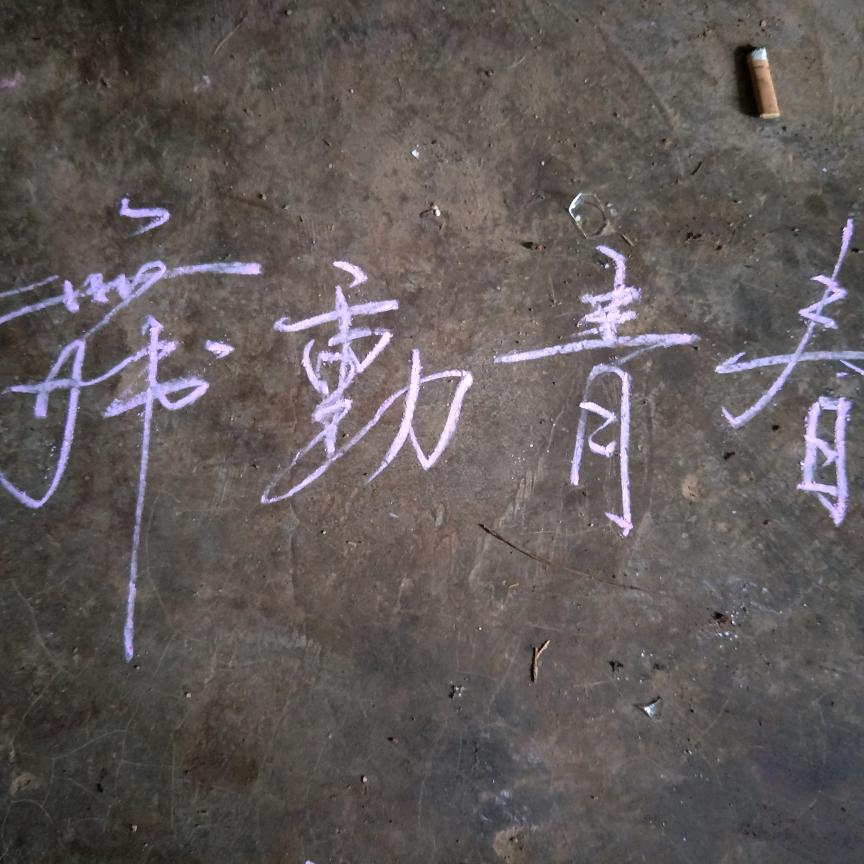 舞動青春